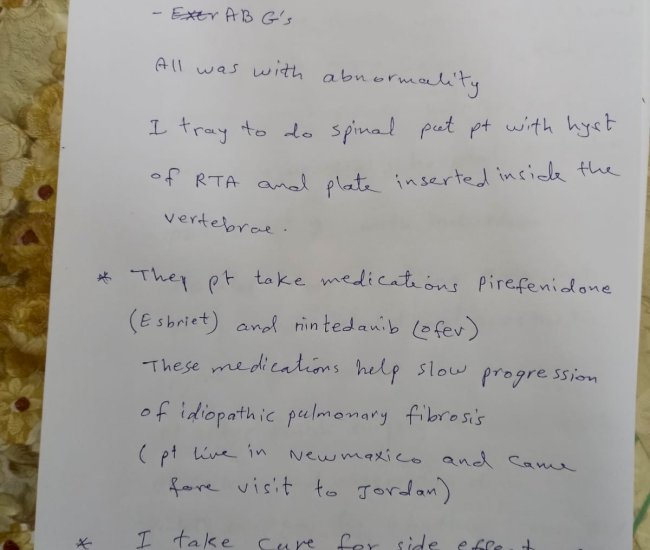 - ABG's
All was with abnormality
I tray to do spinal put pt with hyst
of RTA and plate inserted inside the
vertebrae.
* They pt take medications pirefenidone
(Esbriet) and nintedanib (ofev)
These medications help slow progression
of idiopathic pulmonary fibrosis
( pt live in Newmaxico and came
fore visit to Jordan)
* I take cure for side effect